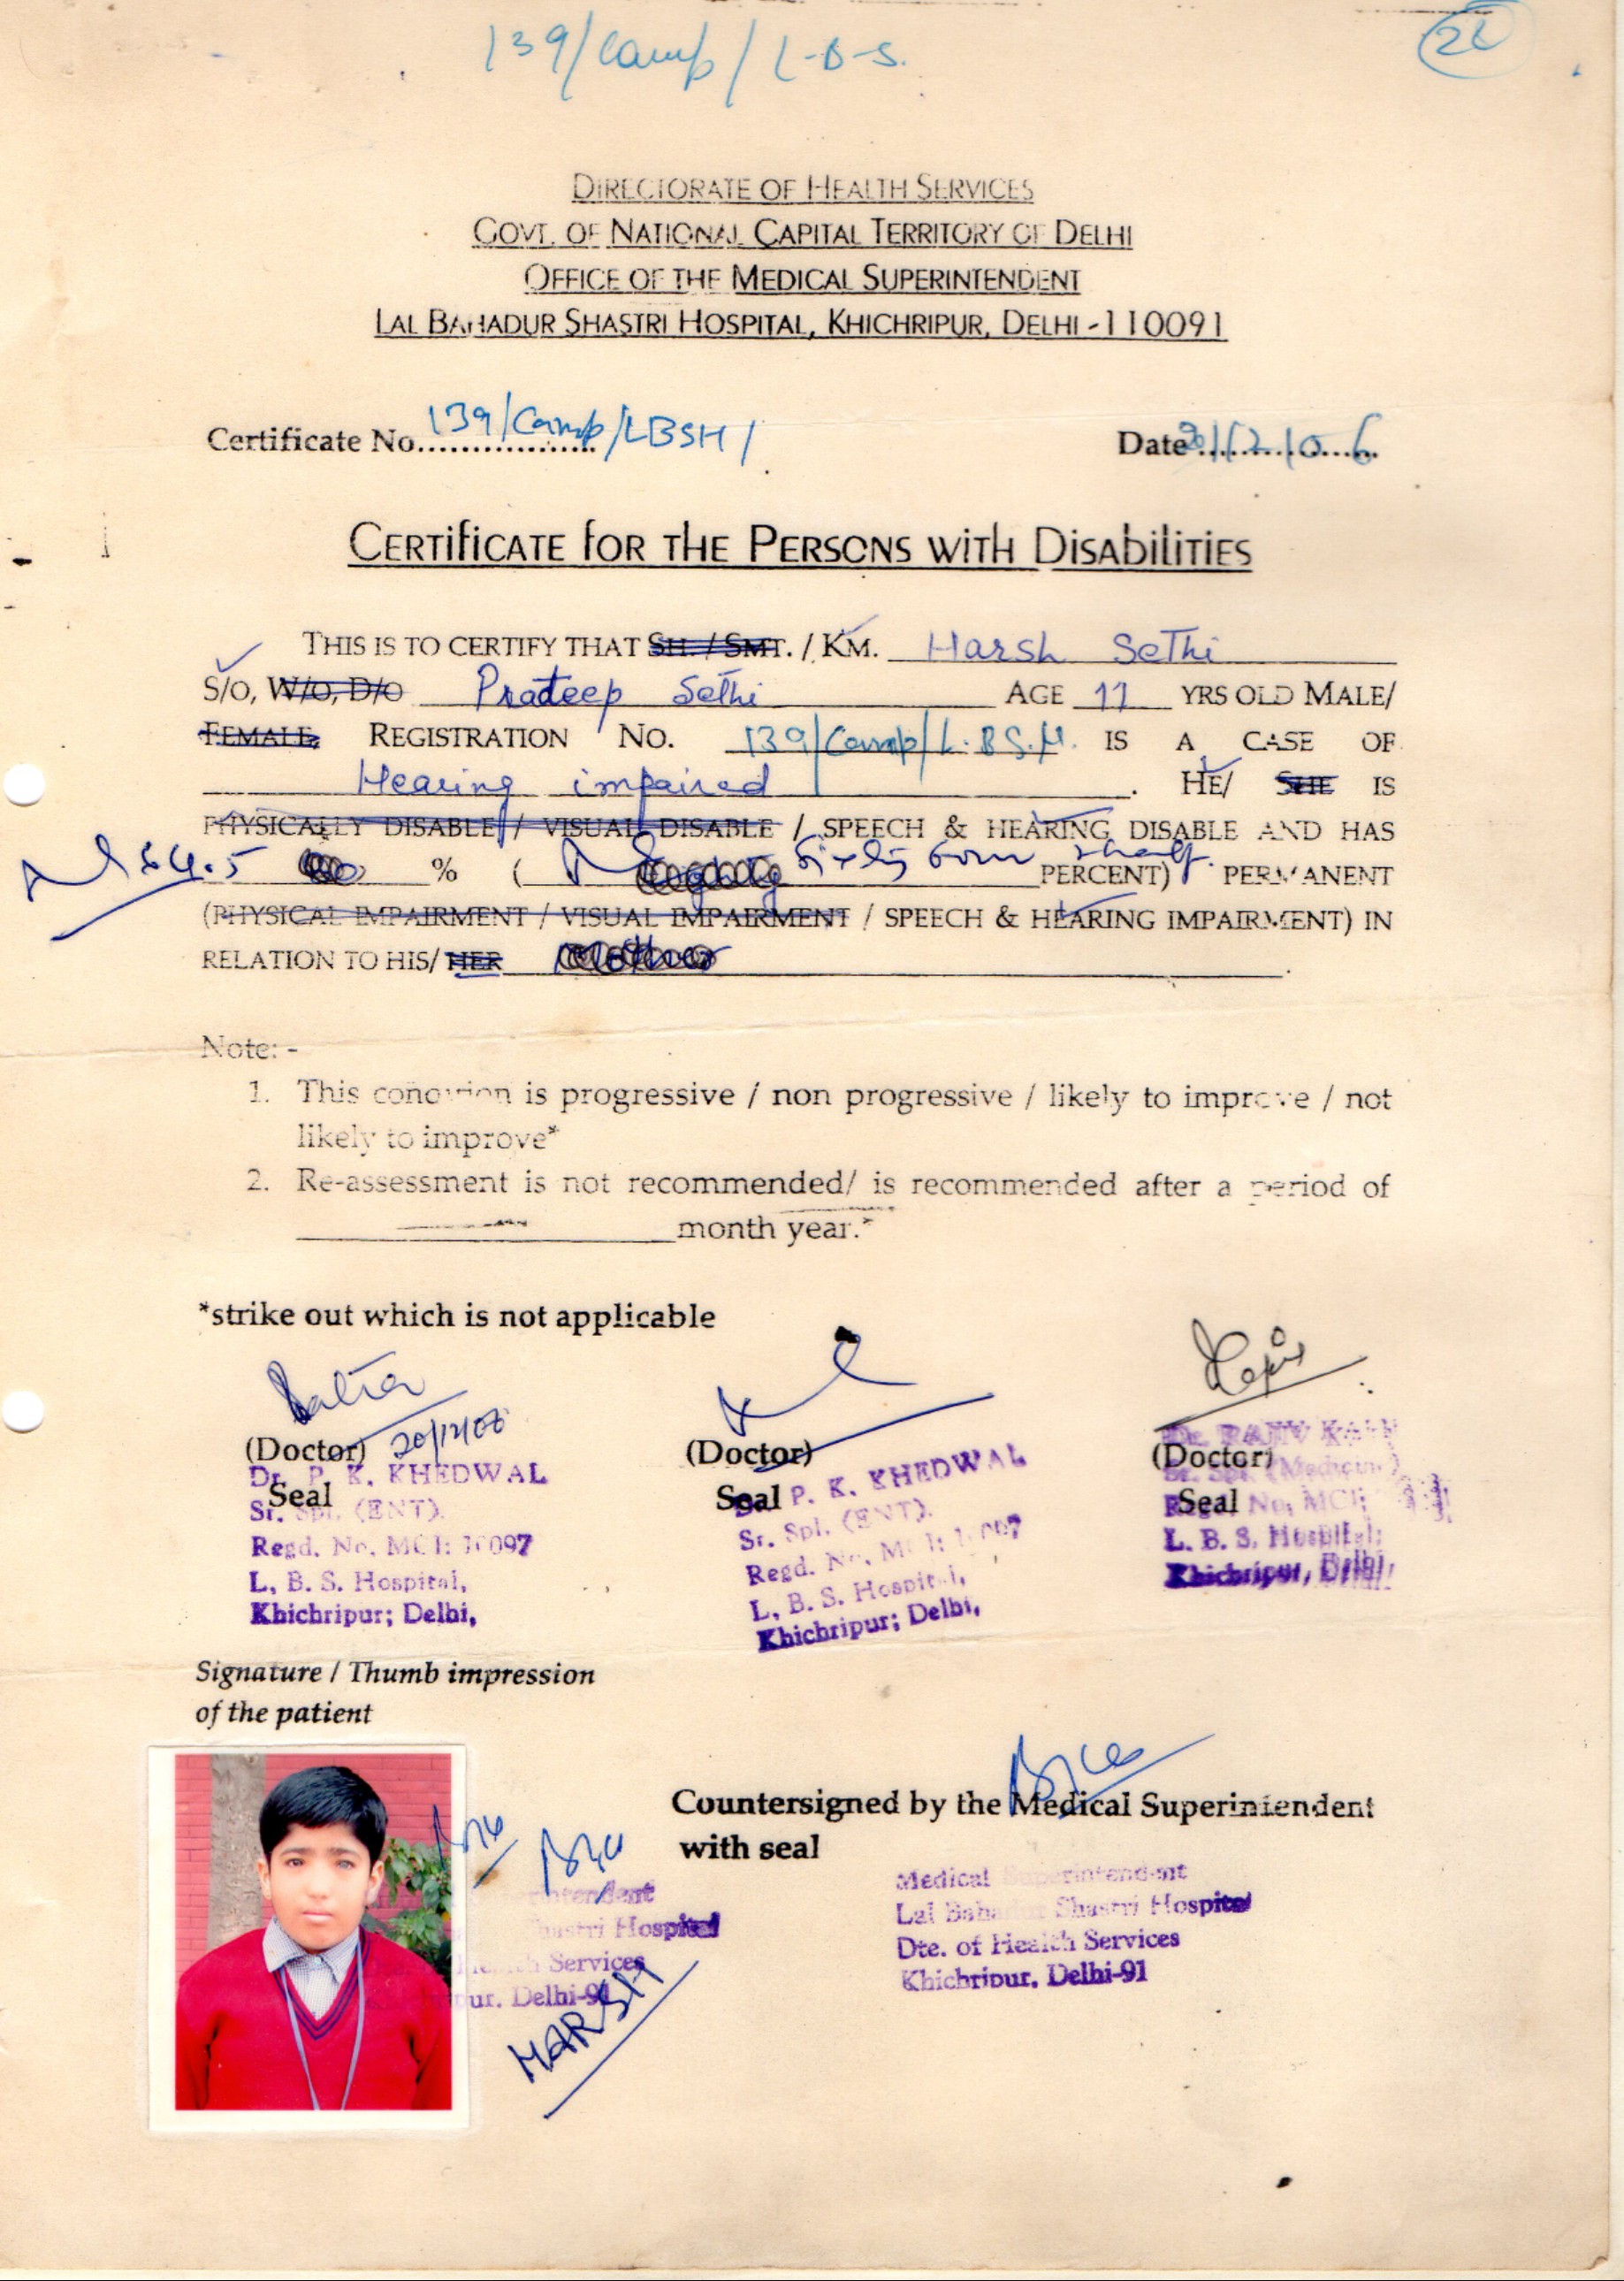 139/Camp/L-B-S.
DIRECTORATE OF HEALTH SERVICES
GOVT. OF NATIONAL CAPITAL TERRITORY OF DELHI
OFFICE OF THE MEDICAL SUPERINTENDENT
LAL BAHADUR SHASTRI HOSPITAL, KHICHRIPUR, DELHI -110091
Certificate No. 139/Camp/LBSH/ Date
CERTIFICATE FOR THE PERSONS WITH DISABILITIES
THIS IS TO CERTIFY THAT SH. / SMT. / KM. Harsh Sethi
S/O, W/O, D/O Pradeep Sethi AGE 11 YRS OLD MALE/
FEMALE, REGISTRATION NO. 139/Camp/L.B.S.H. IS A CASE OF
Hearing impaired. HE/ SHE IS
PHYSICALLY DISABLE / VISUAL DISABLE / SPEECH & HEARING DISABLE AND HAS
64.5 % ( Sixty four half PERCENT) PERMANENT
(PHYSICAL IMPAIRMENT / VISUAL IMPAIRMENT / SPEECH & HEARING IMPAIRMENT) IN
RELATION TO HIS/ HER
Note: -
1. This condition is progressive / non progressive / likely to improve / not
likely to improve*
2. Re-assessment is not recommended/ is recommended after a period of
month year.*
*strike out which is not applicable
(Doctor) 20/12/06 (Doctor) (Doctor)
Seal Seal Seal
Dr. P. K. KHEDWAL
Sr. Spl. (ENT).
Regd. No. MCI:
L. B. S. Hospital,
Khichripur; Delhi,
P. K. KHEDWAL
Sr. Spl. (ENT).
Regd. No. MCI:
L. B. S. Hospital,
Khichripur; Delhi,
Dr. RAJIV
Sr. Spl. (Medicine)
Regd. No. MCI:
L. B. S. Hospital;
Khichripur, Delhi,
Signature / Thumb impression
of the patient
Countersigned by the Medical Superintendent
with seal
Medical Superintendent
Lal Bahadur Shastri Hospital
Dte. of Health Services
Khichripur, Delhi-91
Hospital
Services
Delhi-91
HARSH